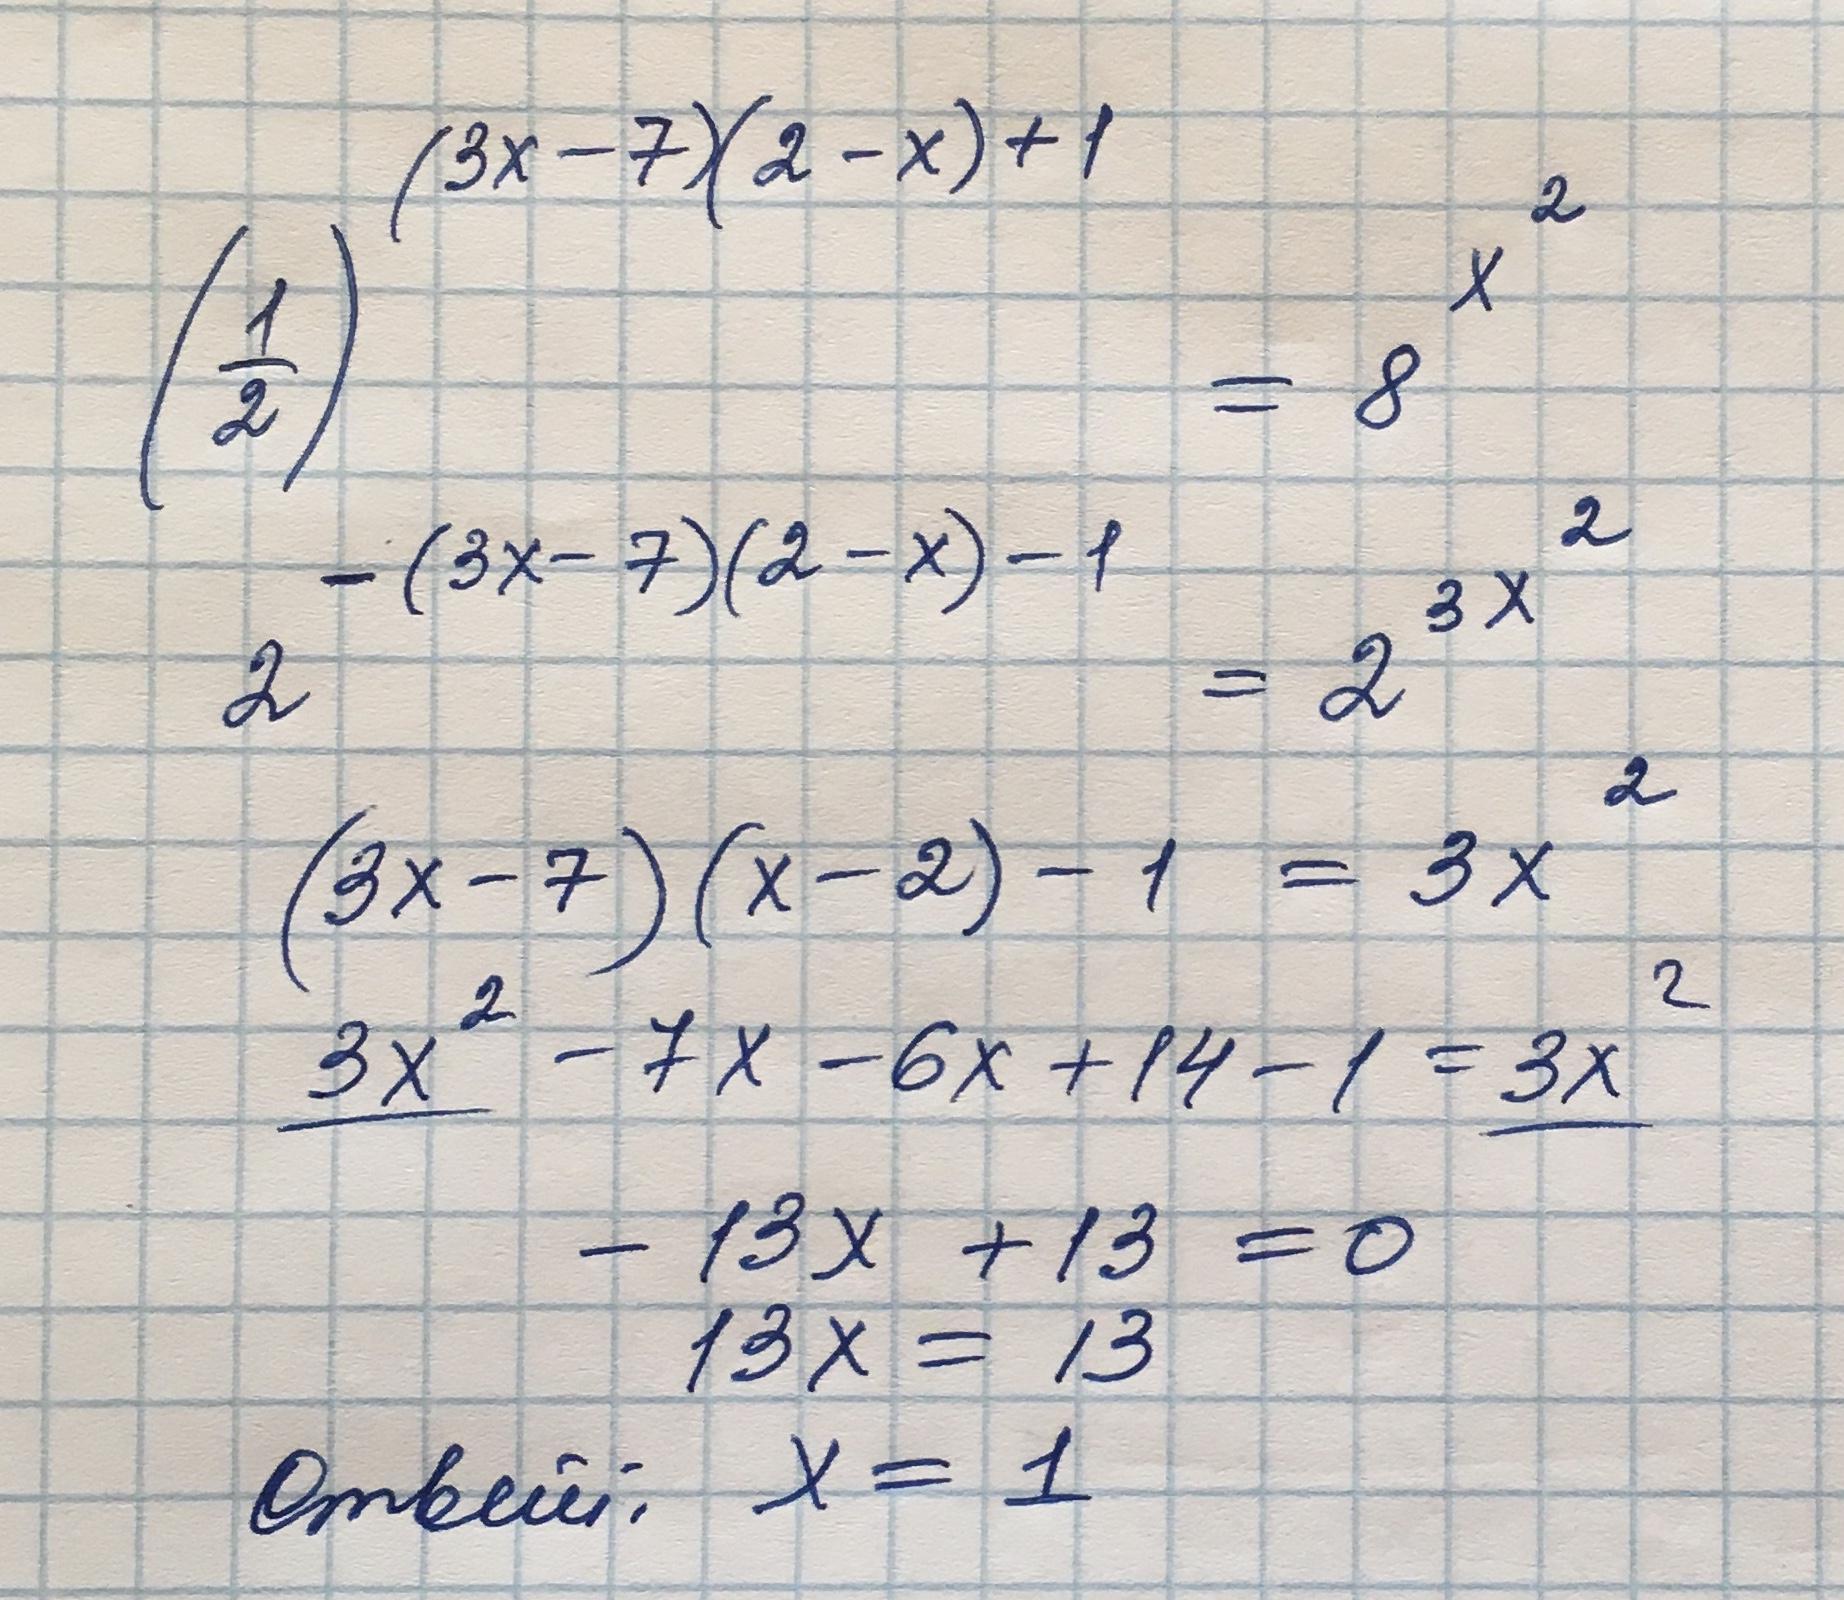 (1/2)^((3x-7)(2-x)+1) = 8^(x^2)
2^(-(3x-7)(2-x)-1) = 2^(3x^2)
(3x-7)(x-2)-1 = 3x^2
3x^2 -7x -6x +14-1 = 3x^2
-13x +13 = 0
13x = 13
Ответ: x = 1